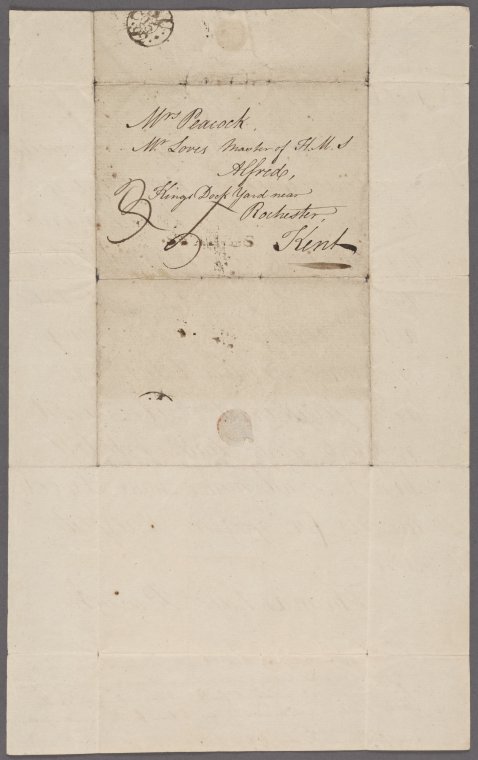 Mrs Peacock.
Mr Loves Master of H.M.S
Alfred,
Kings Dock Yard near
Rochester,
Kent